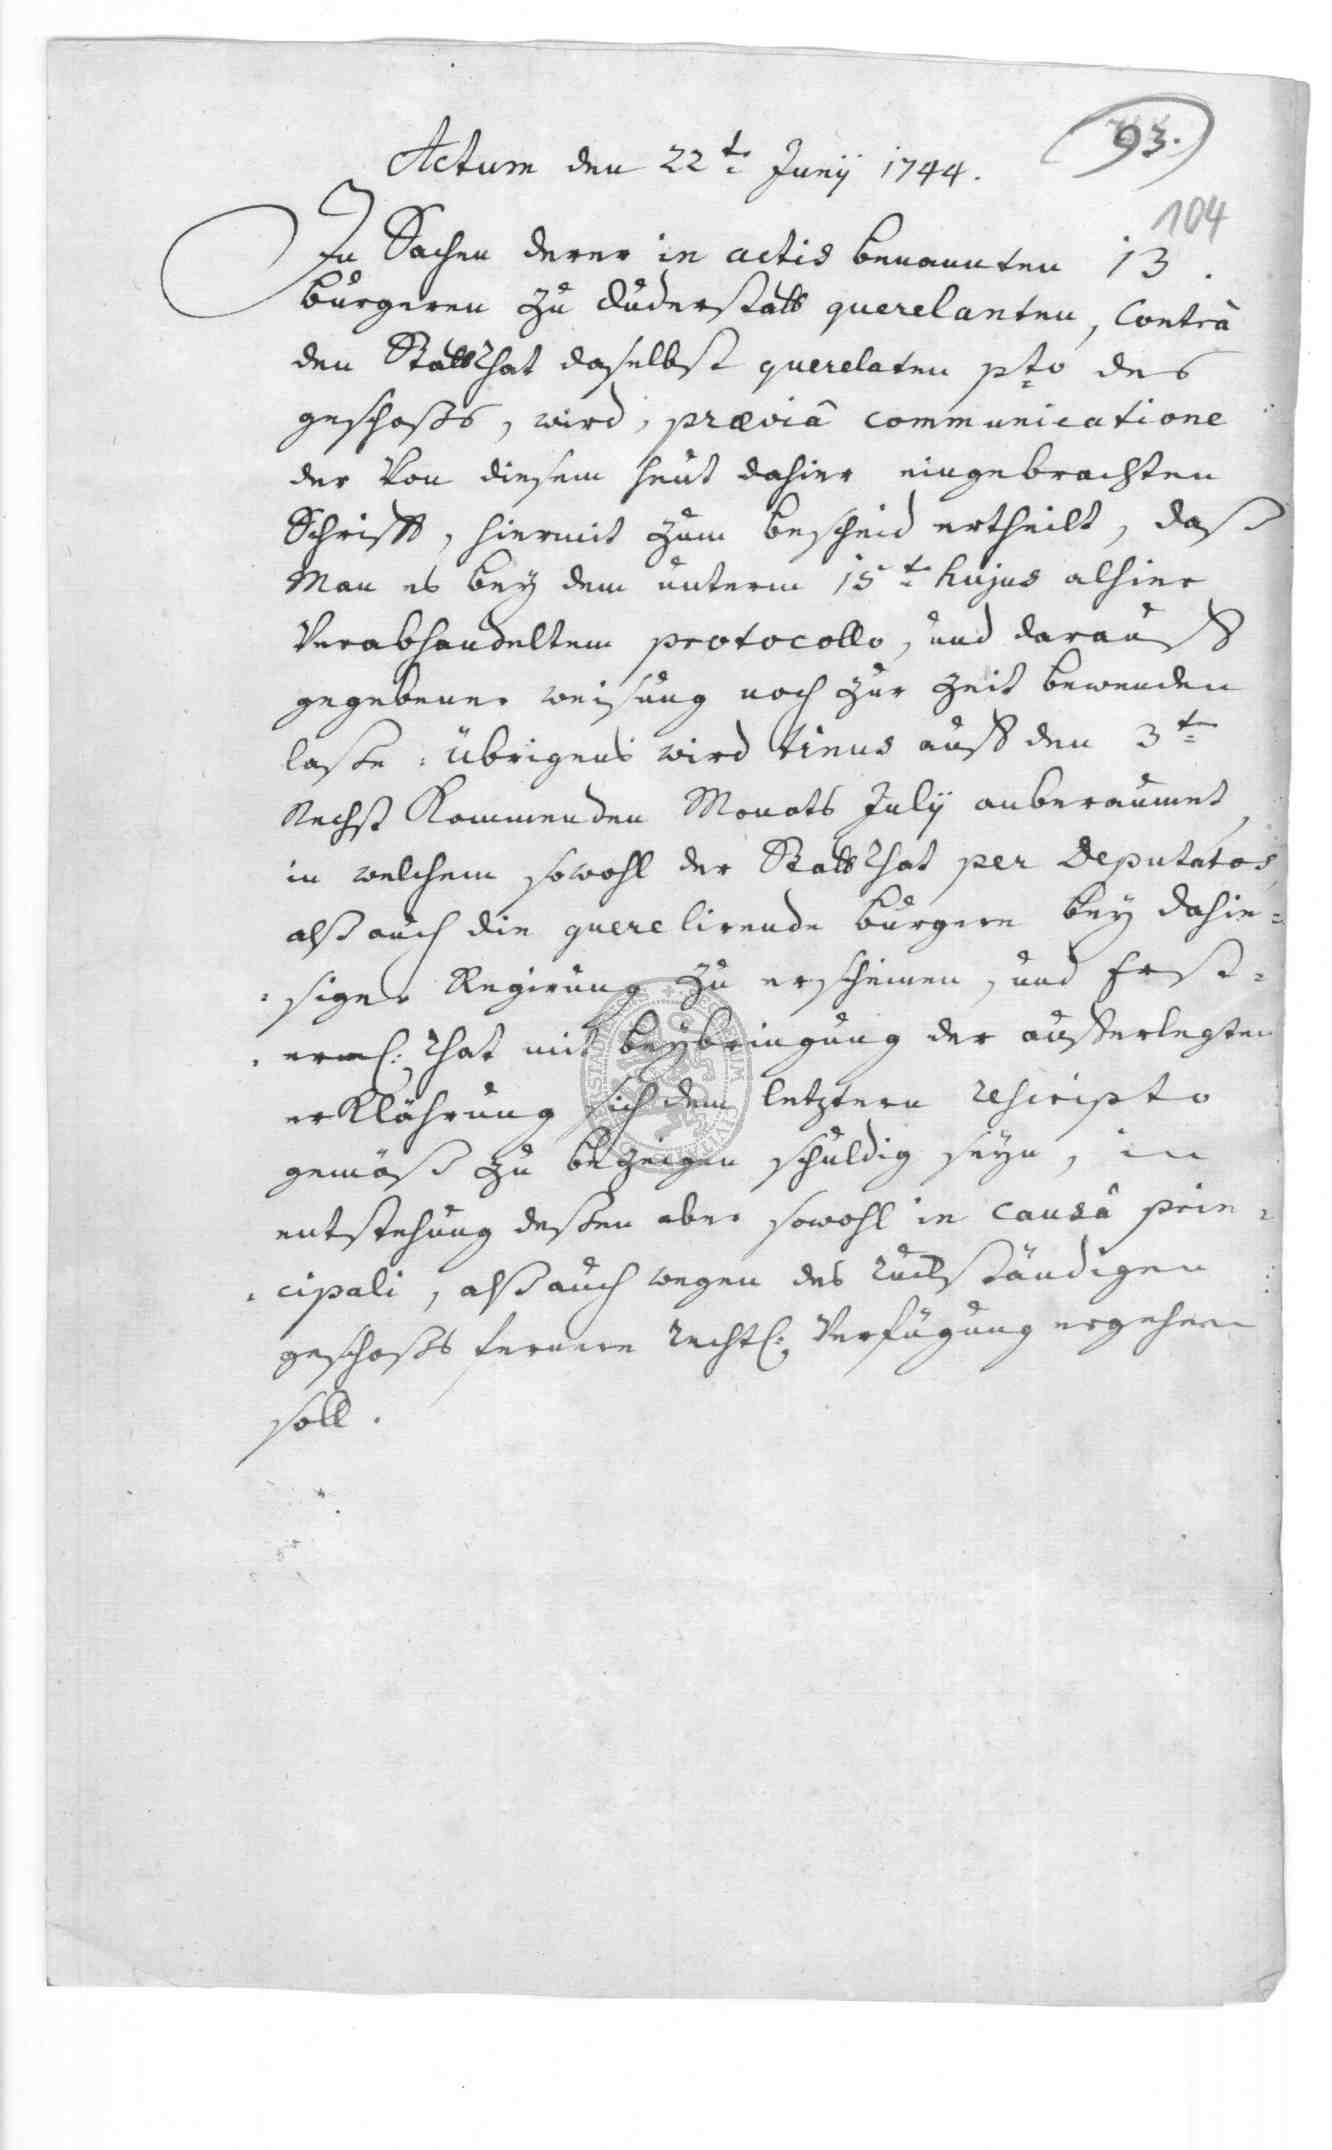 93.
104
Actum den 22t Junij 1744.
In Sachen derer in actis benannten 13.
burgeren zu duderstatt querelanten, Contrà
den Stattrhat daselbst querelaten pto des
geschoßs, wird, præviâ communicatione
der von diesem heut dahier eingebrachten
Schrifft, hiermit zum bescheid ertheilt, daß
Man es bey dem unterm 15t hujus alhier
Verabhandeltem protocollo, und darauff
gegebener weisung noch zur zeit bewenden
laße: übrigens wird auff den 3t
Nechst Kommenden Monats Julij anberaumet,
in welchem sowohl der Stattrhat per Deputatos,
alß auch die querelirende burgere bey dahie=
=siger Regirung zu erscheinen, und Erst=
rhat mit beybringung der aufferlegten
erKlährung sich dem letztern rescripto
gemäß zu bezeigen schuldig seyn, in
entstehung deßen aber sowohl in causâ prin=
=cipali, alß auch wegen des ruckständigen
geschoßs fernere rechtl: Verfügung ergehen
soll.